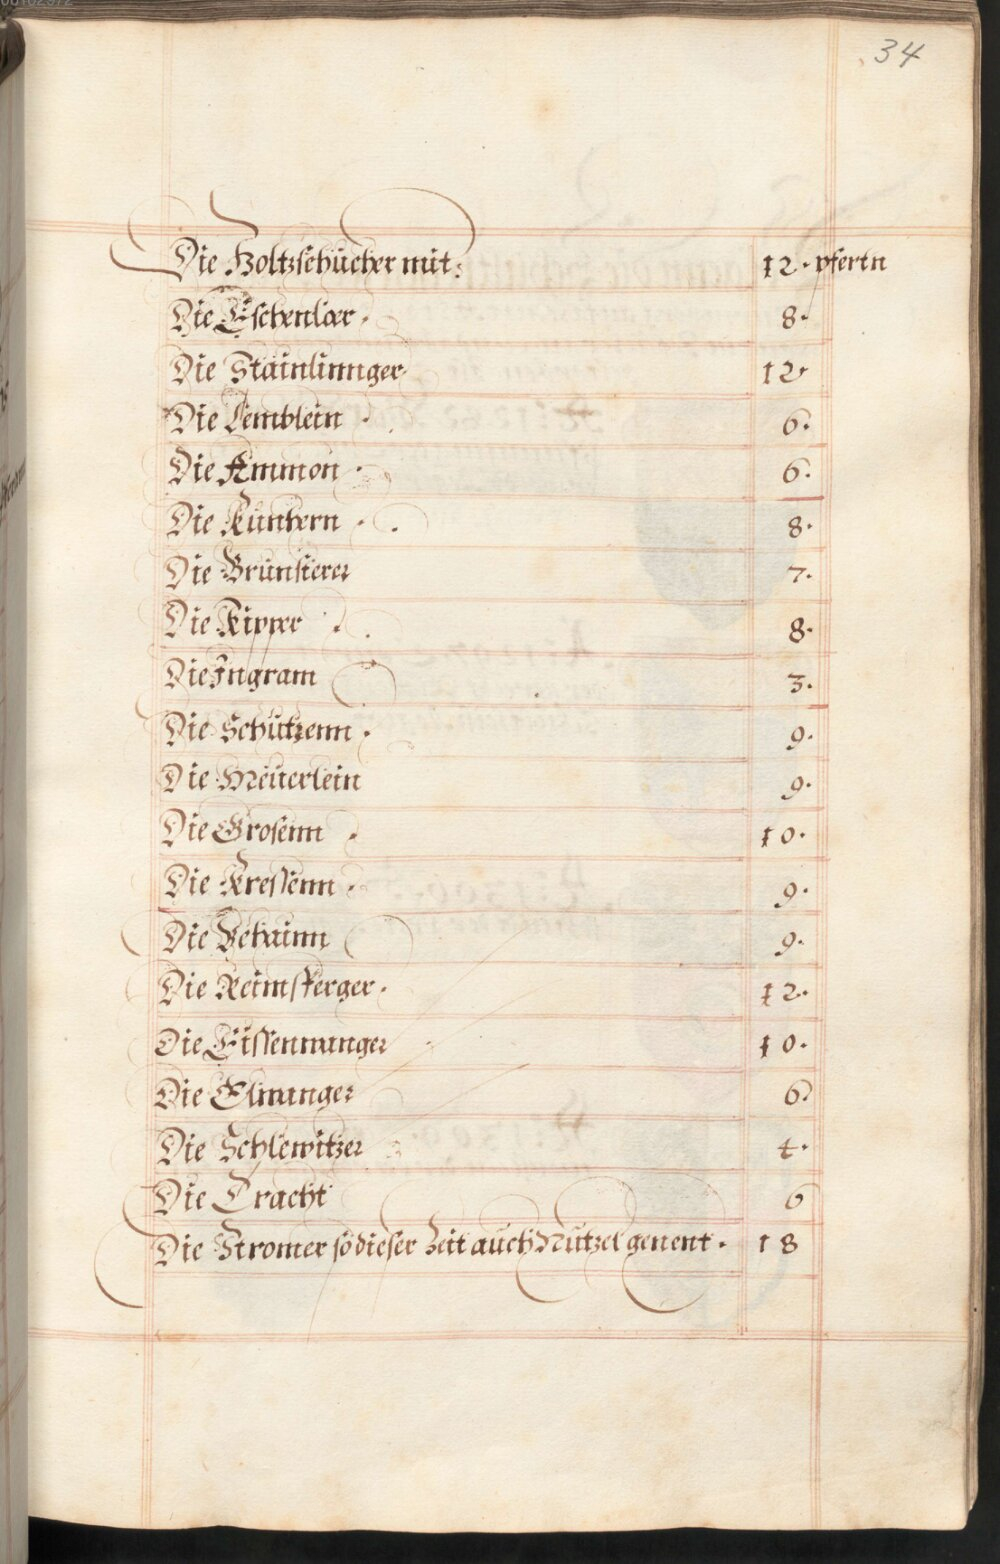 34
Die Holtzschücher mit: 12. pfertn
Die Eschenloer. 8.
Die Stainlinnger 12
Die Lemblein 6.
Die Ammon. 6.
Die 8.
Die Brünsterer 7.
Die 8.
Die Ingram 3.
Die Schützenn. 9.
Die Meüerlein 9.
Die Grosenn. 10.
Die Kressenn. 9.
Die Behaimn 9.
Die Reimsperger. 12.
Die 10.
Die Elwanger 6.
Die Schlewitzer 4.
Die Tracht 6
Die Stromer so dieser Zeit auch Nützel genent. 18